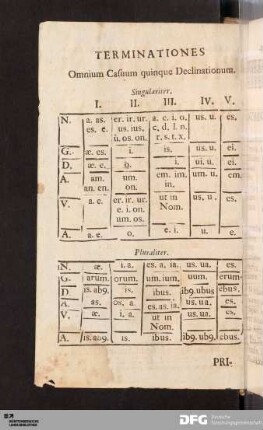 TERMINATIONES
Omnium Casuum quinque Declinationum.
Singulariter.
I. II. III. IV. V.
N. a. as. er. ir. ur. a. e. i. o. us. u. es.
es. e. us. ius. c. d. l. n.
ũ. os. on. r. s. t. x.
G. æ. es. i. is. us. u. ei.
D. æ. e. o. i. ui. u. ei.
A. am. um. em. im. um. u. em.
an. en. on. in.
V. a. e. er. ir. ur. ut in us. u. es.
e. i. on. Nom.
um. os.
A. a. e. o. e. i. u. e.
Pluraliter.
N. æ. i. a. es. a. ia. us. ua. es.
G. arum. orum. um. ium. uum. erum
D. is. ab9. is. ibus. ib9. ubus ebus.
A. as. os. a. es. as. ia. us. ua. es.
V. æ. i. a. ut in us. ua. es.
Nom.
A. is. ab9. is. ibus. ib9. ub9. ebus.
PRI-
DFG